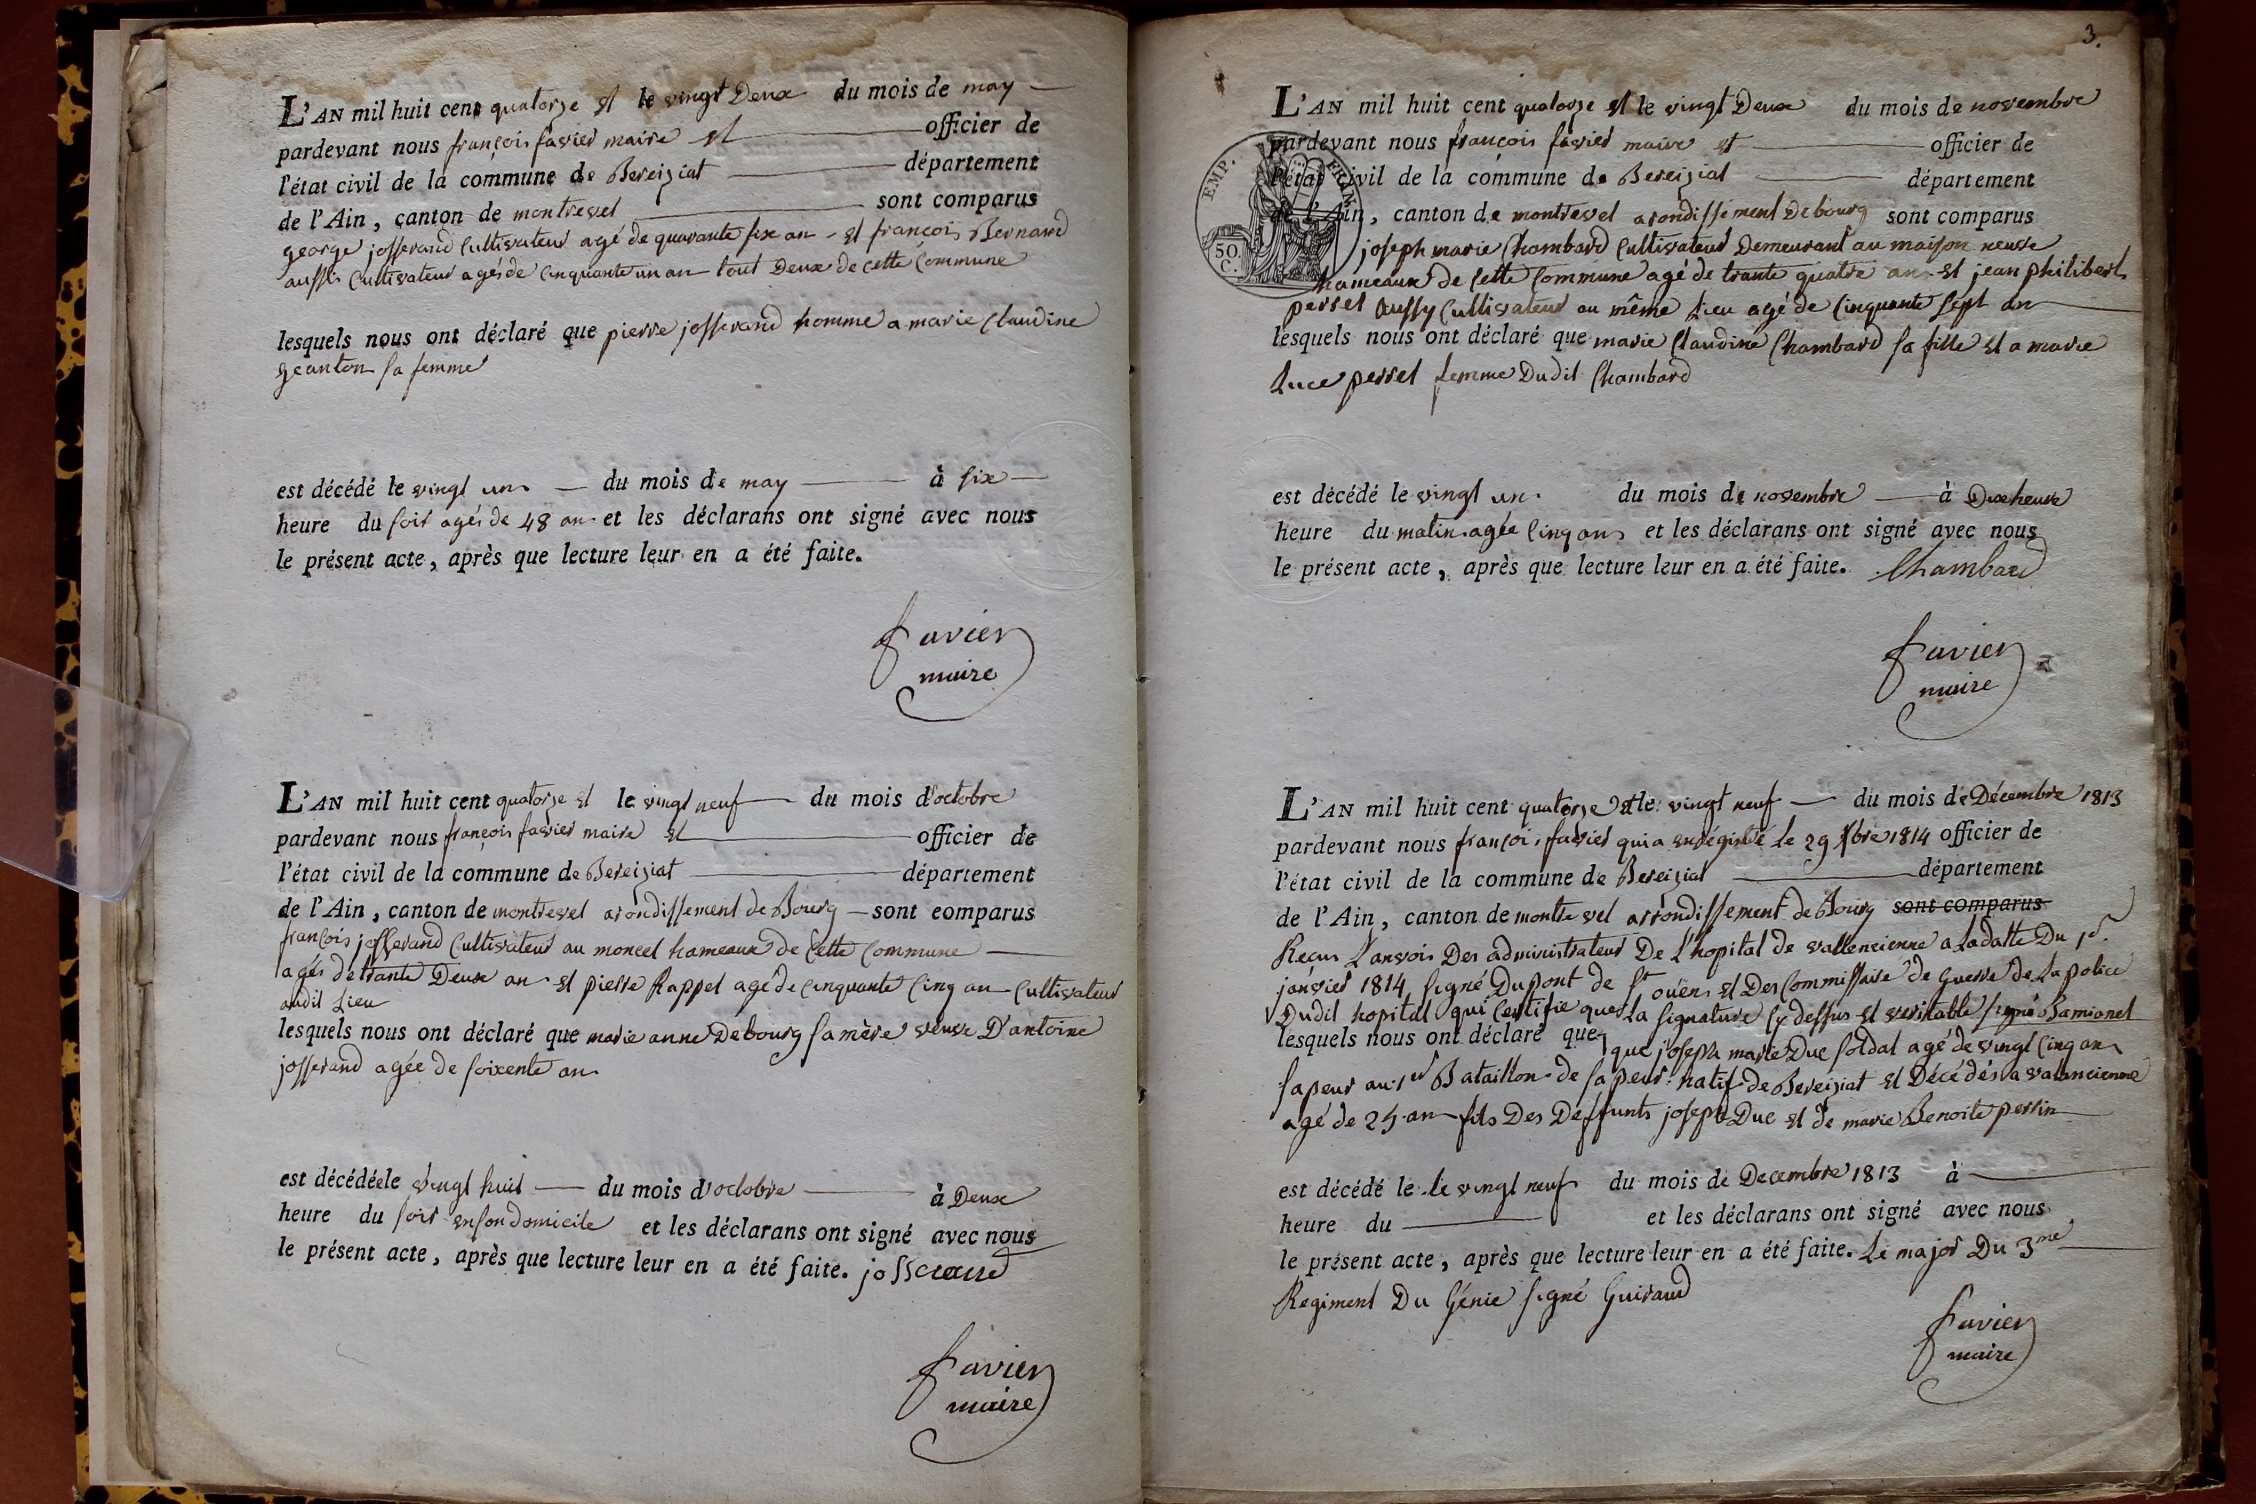 L'AN mil huit cent quatorze et le vingt Deux du mois de may
pardevant nous françois favier maire et officier de
l'état civil de la commune de Bereiziat département
de l'Ain, canton de montrevel sont comparus
george josserand Cultivateur agé de quarante six an et françois Bernard
aussi Cultivateur agés de cinquante un an tout Deux de cette Commune
lesquels nous ont déclaré que pierre josserand homme a marie Claudine
geanton sa femme
est décédé le vingt un du mois de may à six
heure du soir agés de 48 an et les déclarans ont signé avec nous
le présent acte, après que lecture leur en a été faite.
favier
maire
L'AN mil huit cent quatorze et le vingt neuf du mois d'octobre
pardevant nous françois favier maire et officier de
l'état civil de la commune de Bereiziat département
de l'Ain, canton de montrevel arondissement de Bourg sont comparus
françois josserand Cultivateur au moncel hameaux de Cette Commune
agés de trante Deux an et pierre Rappet agé de cinquante Cinq an Cultivateur
audit Lieu
lesquels nous ont déclaré que marie anne Debourg sa mère veuve D'antoine
josserand agée de soixente an
est décédéele vingt huit du mois d'octobre à Deux
heure du soir en son domicile et les déclarans ont signé avec nous
le présent acte, après que lecture leur en a été faite. josserand
favier
maire
3.
L'AN mil huit cent quatorze et le vingt Deux du mois de novembre
pardevant nous françois favier maire et officier de
l'état civil de la commune de Bereiziat département
de l'Ain, canton de montrevel arondissement de bourg sont comparus
EMP. FRAN.
50. C.
joseph marie Chambard Cultivateur Demeurant au maison neuve
hameaux de Cette Commune agé de trante quatre an et jean philibert
perret aussy Cultivateur au même Lieu agé de Cinquante Sept an
lesquels nous ont déclaré que marie Claudine Chambard sa fille et a marie
Luce perret femme Dudit Chambard
est décédé le vingt un du mois de novembre à Dixe heure
heure du matin agée Cinq ans et les déclarans ont signé avec nous
le présent acte, après que lecture leur en a été faite. Chambard
favier
maire
L'AN mil huit cent quatorze et le vingt neuf du mois de Décembre 1813
pardevant nous françois favier qui a enrégistré Le 29 Xbre 1814 officier de
l'état civil de la commune de Bereiziat département
de l'Ain, canton de montrevel arrondissement de Bourg sont comparus
Reçus L'anvois Des administrateur De L'hopital de vallencienne a La datte Du 1er
janvier 1814 signé Dupont de St ouën et Des Commissaire de Guerre de La police
Dudit hopital qui Certifie que La signature Cy dessus et veritable signé Bamianel
lesquels nous ont déclaré que que joseph marie Duc soldat agé de vingt Cinq an
sapeur au 1er Bataillon de sapeur natif de Bereiziat et Décédés a valancienne
agé de 25 an fils Des Deffunts joseph Duc et de marie Benoite perrin
est décédé le le vingt neuf du mois de Decembre 1813 à
heure du et les déclarans ont signé avec nous
le présent acte, après que lecture leur en a été faite. Le major Du 3me
Regiment Du Génie signé Guiraud
favier
maire